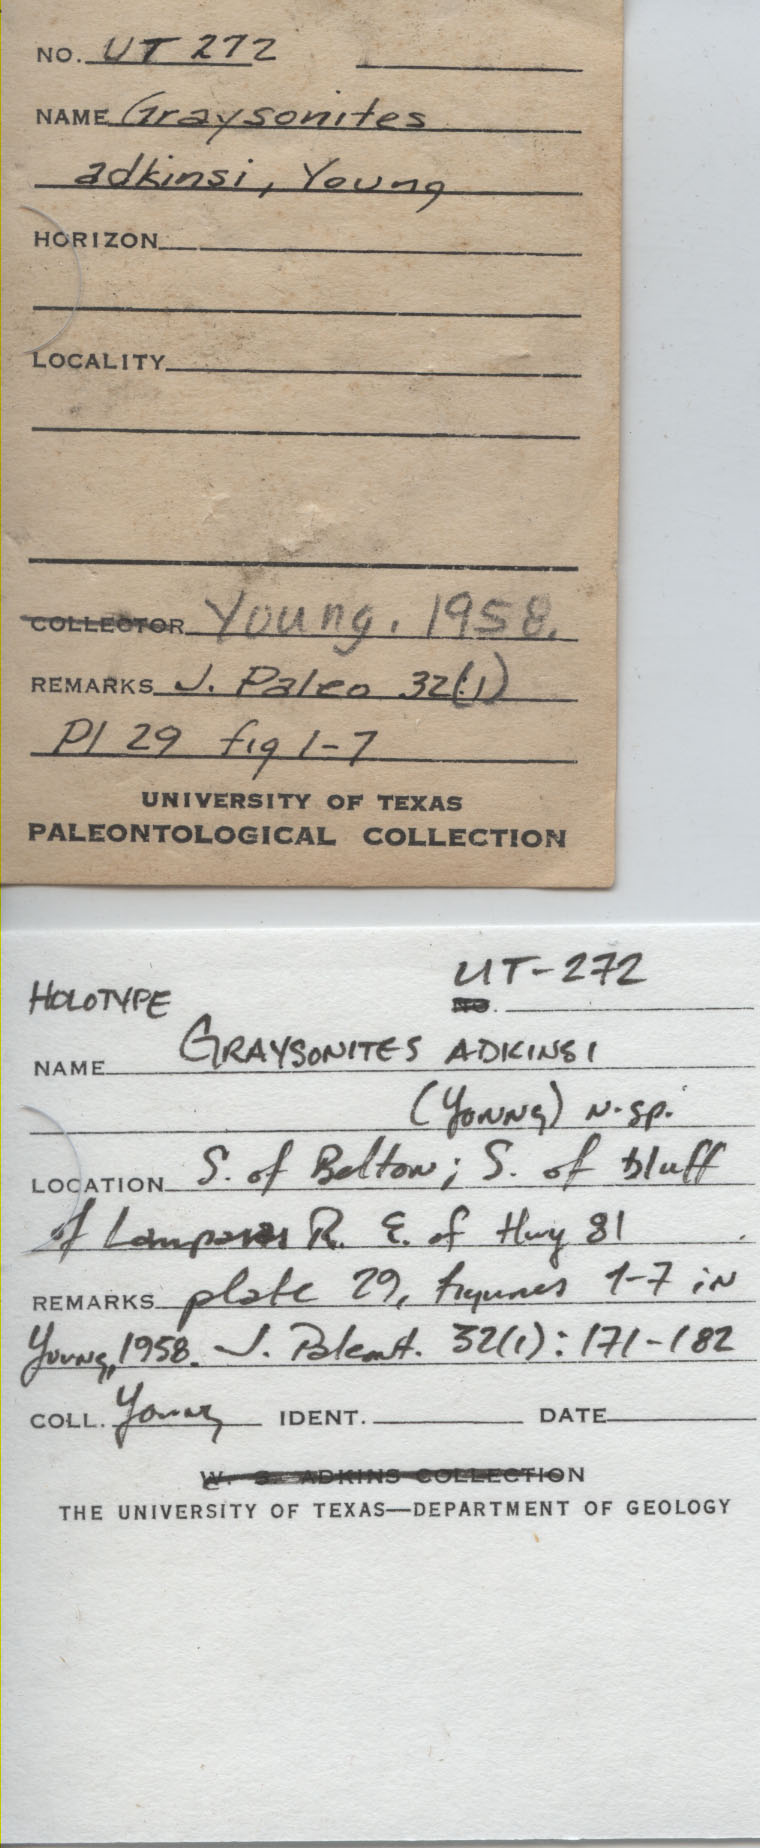 NO. UT 272
NAME Graysonites
adkinsi, Young
HORIZON
LOCALITY
COLLECTOR Young. 1958.
REMARKS J. Paleo 32(1)
Pl 29 fig 1-7
UNIVERSITY OF TEXAS
PALEONTOLOGICAL COLLECTION
UT-272
HOLOTYPE NO.
NAME GRAYSONITES ADKINSI
(Young) n. sp.
LOCATION S. of Belton; S. of bluff
of Lampasas R. E. of Hwy 81
REMARKS plate 29, figures 1-7 in
Young, 1958. J. Paleont. 32(1): 171-182
COLL. Young IDENT. DATE
W. S. ADKINS COLLECTION
THE UNIVERSITY OF TEXAS—DEPARTMENT OF GEOLOGY